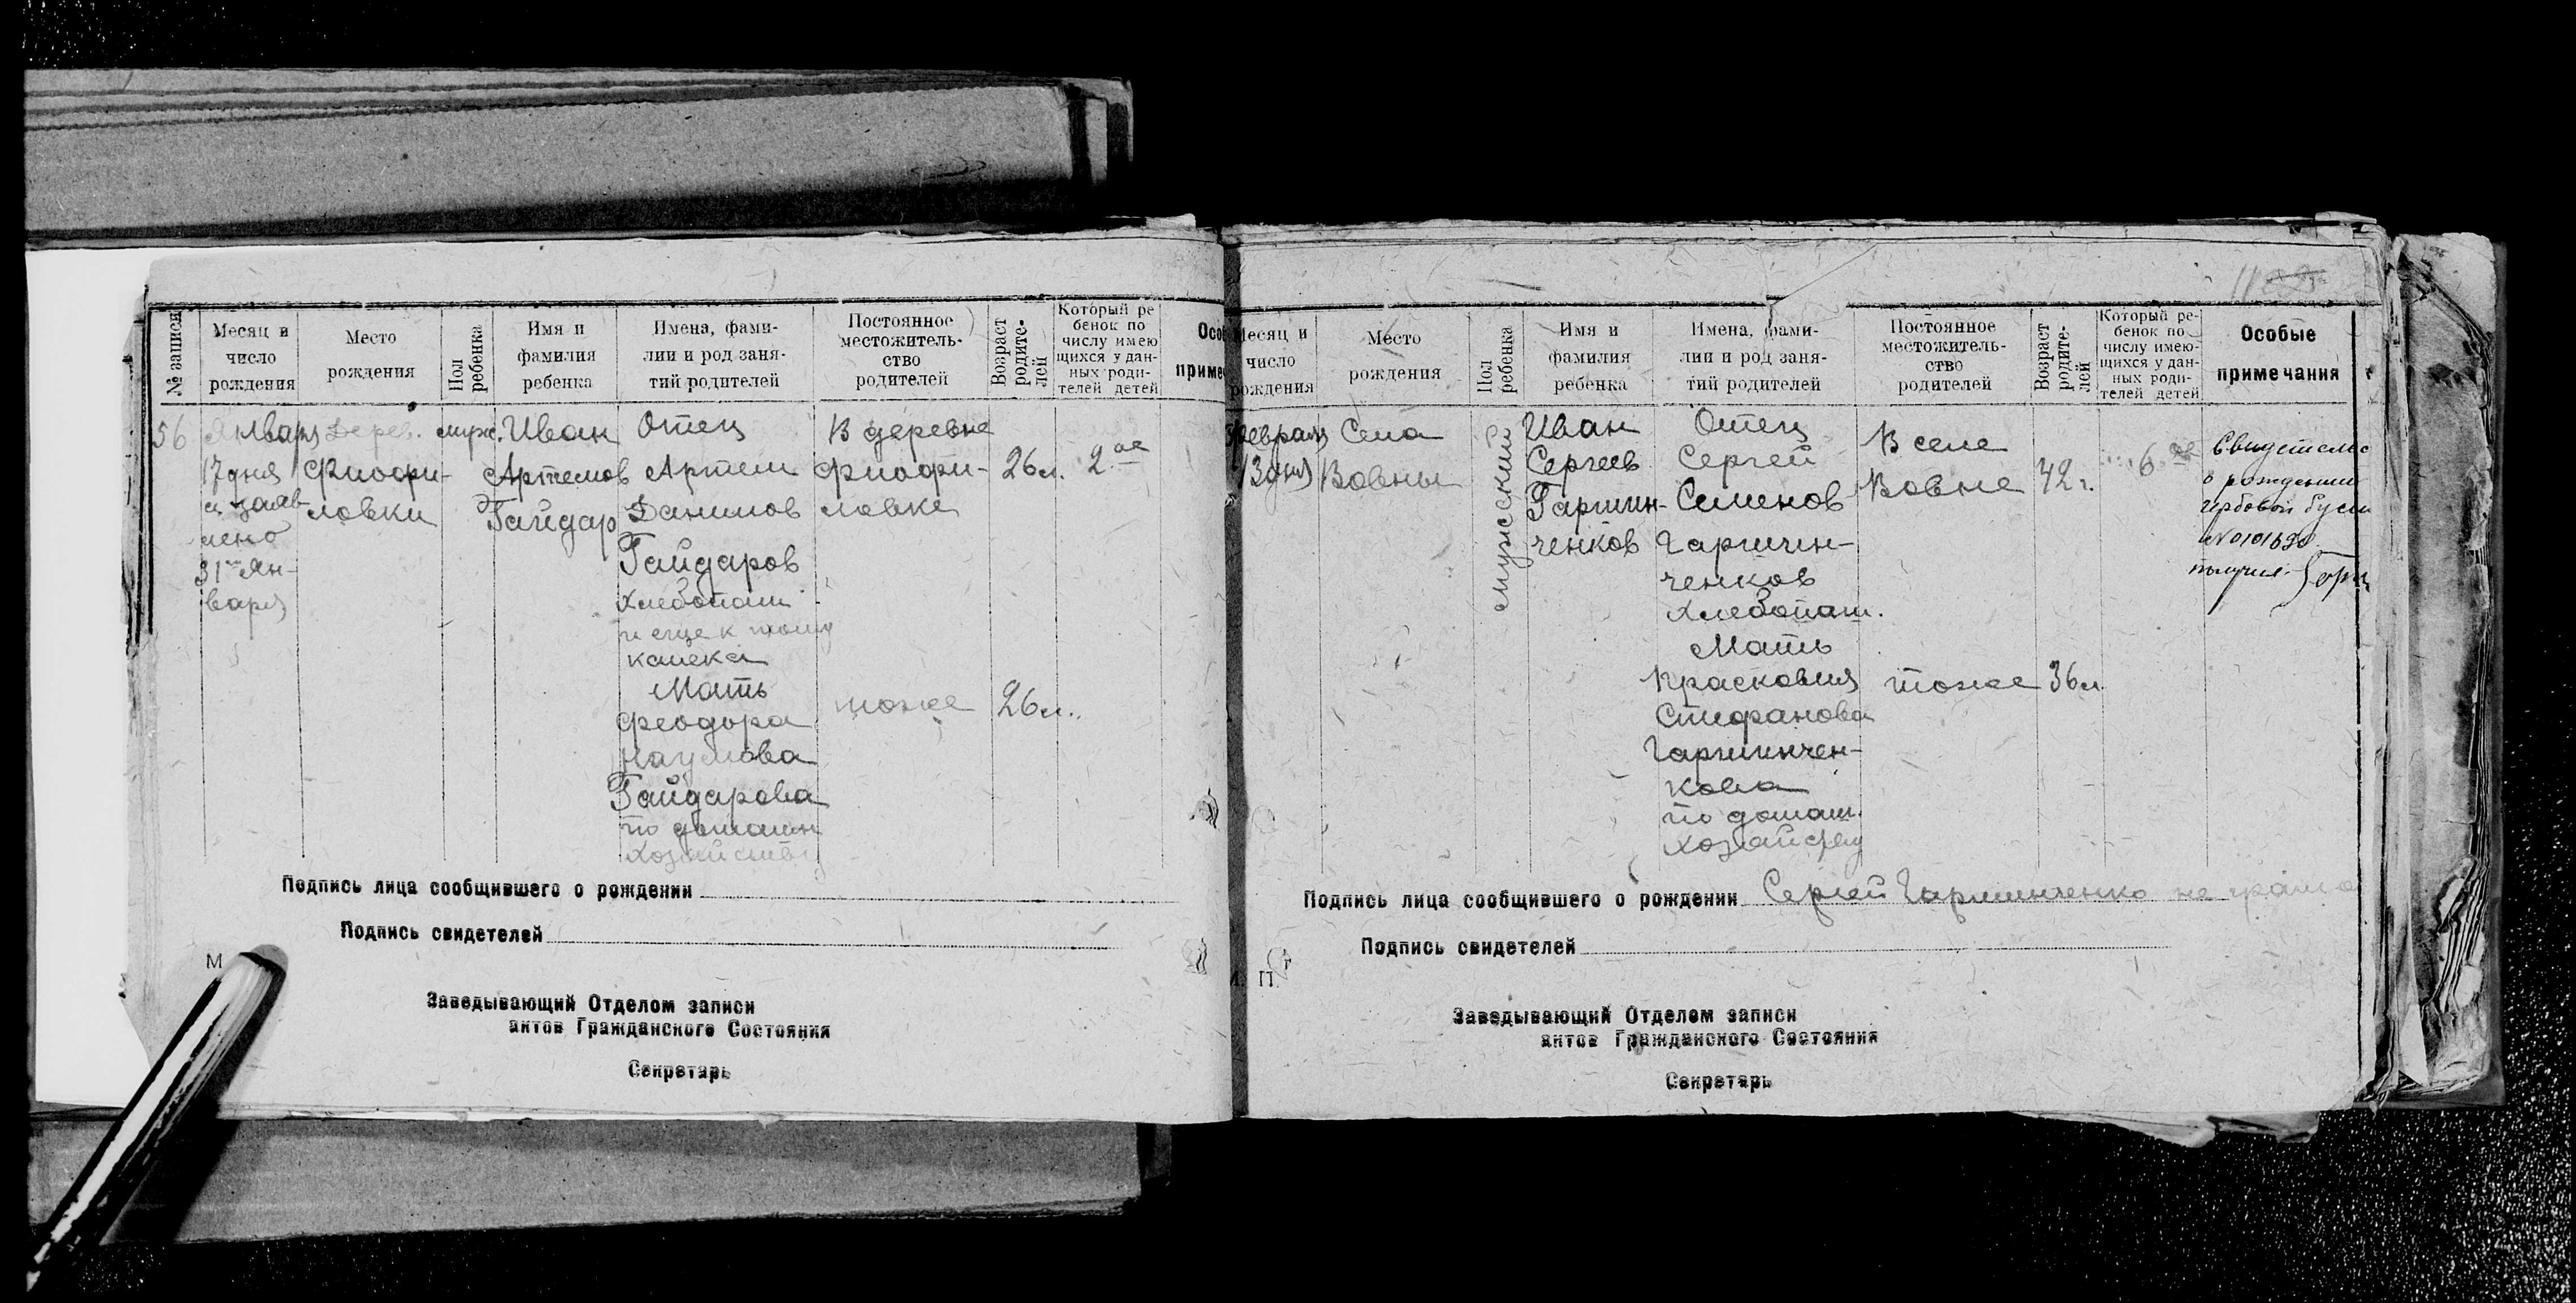 № записи
Месяц и
число
рождения
Место
рождения
Пол
ребенка
Имя и
фамилия
ребенка
Имена, фами-
лии и род заня-
тий родителей
Постоянное
местожитель-
ство
родителей
Возраст
родите-
лей
Который ре
бенок по
числу имею
щихся у дан-
ных роди-
телей детей
Особ
приме
56
Января
17 дня
а заяв-
лено
31го Ян-
варя
Дерев.
Фиофи-
ловки
муж.
Иван
Артемов
Гайдар
Отец
Артем
Данилов
Гайдаров
хлебопаш
и еще к тому
калека
Мать
Феодора
Наумова
Гайдарова
по домашн
хозяйству
В деревне
Фиофи-
ловке
тоже
26 л.
26 л.
2ое
Подпись лица сообщившего о рождении
Подпись свидетелей
М
Заведывающий Отделом записи
актов Гражданского Состояния
Секретарь
Месяц и
число
рождения
Место
рождения
Пол
ребенка
Имя и
фамилия
ребенка
Имена, фами-
лии и род заня-
тий родителей
Постоянное
местожитель-
ство
родителей
Возраст
родите-
лей
Который ре-
бенок по
числу имею-
щихся у дан-
ных роди-
телей детей
Особые
примечания
Февраля
13 дня
Села
Вовны
Мужеский
Иван
Сергеев
Гаршин-
ченков
Отец
Сергей
Семенов
Гаршин-
ченков
хлебопаш.
Мать
Прасковия
Стефанова
Гаршинчен-
кова
по домаш.
хозяйству
В селе
Вовне
тоже
42 г.
36 л.
6ое
Свидетельс
о рождении
гербовой бум
№0101630
получил
Подпись лица сообщившего о рождении Сергей Гаршинченко не грамо
Подпись свидетелей
П.
Заведывающий Отделом записи
актов Гражданского Состояния
Секретарь